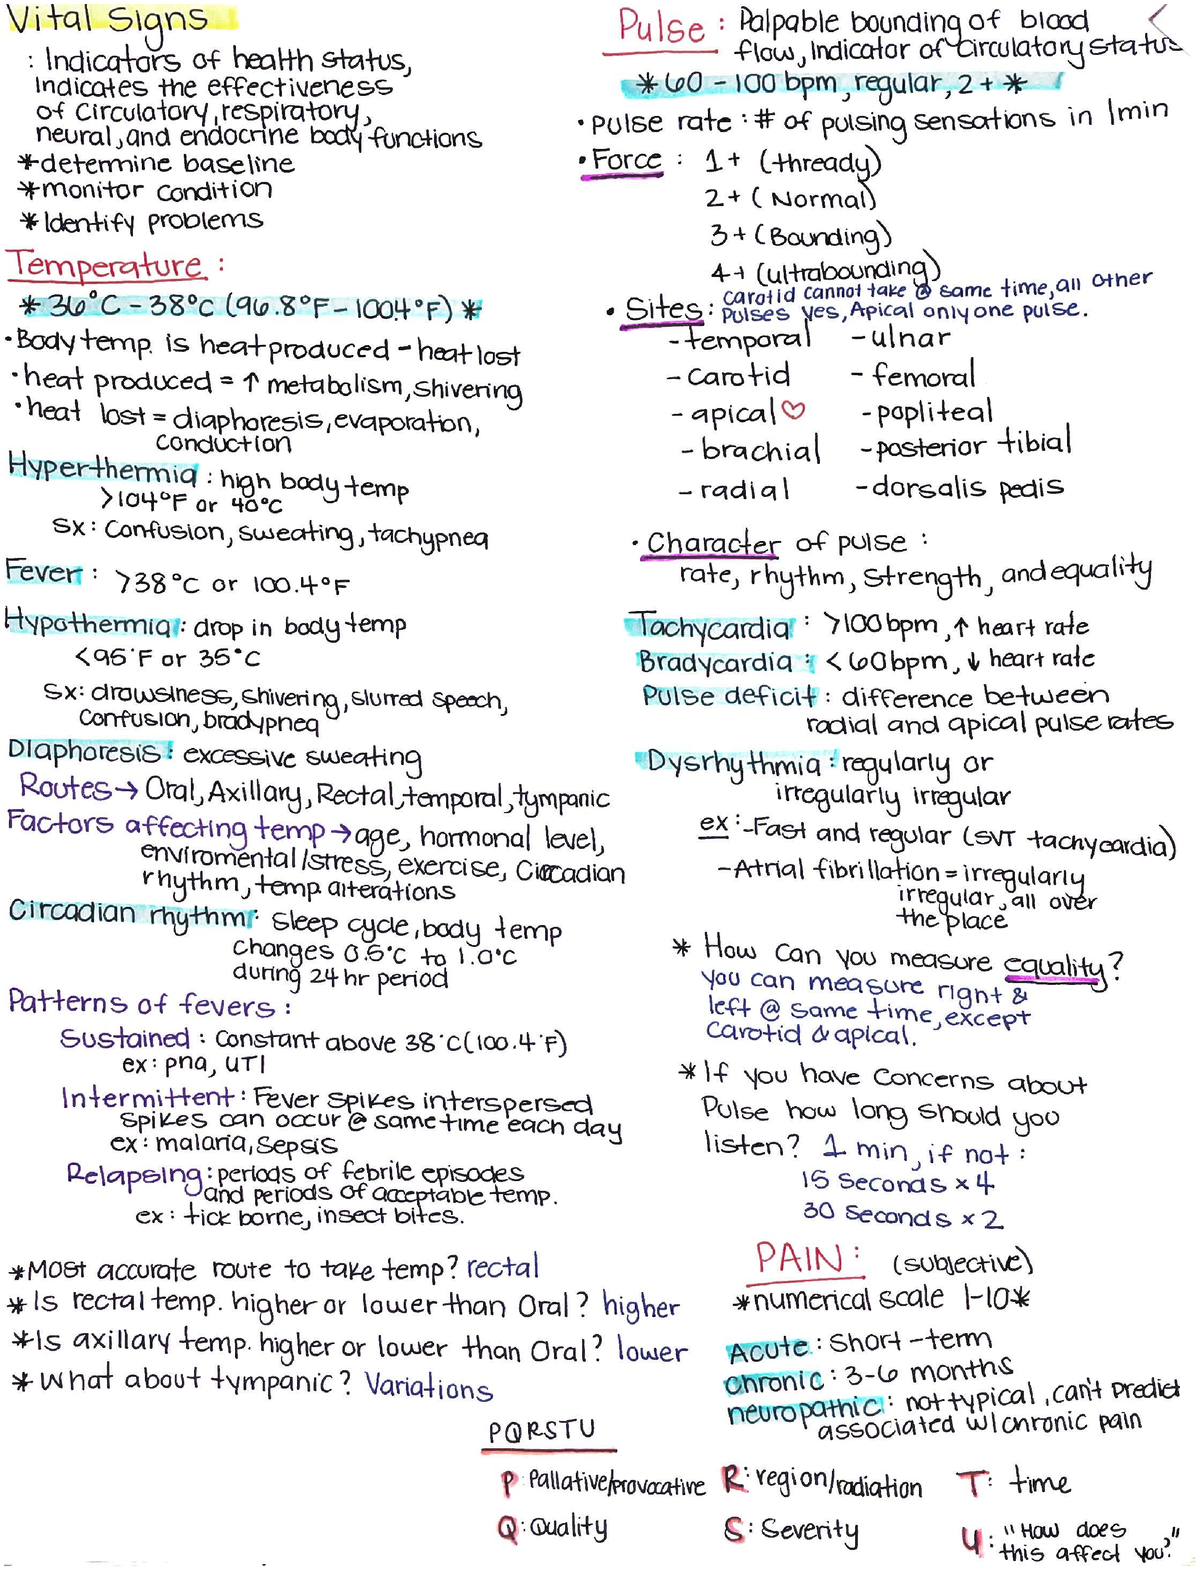 Vital Signs
: Indicators of health status,
indicates the effectiveness
of circulatory, respiratory,
neural, and endocrine body functions
*determine baseline
*monitor condition
*Identify problems
Temperature :
* 36°C - 38°C (96.8°F - 100.4°F) *
• Body temp. is heat produced - heat lost
• heat produced = ↑ metabolism, shivering
• heat lost = diaphoresis, evaporation,
conduction
Hyperthermia : high body temp
>104°F or 40°C
Sx: Confusion, sweating, tachypnea
Fever : >38°C or 100.4°F
Hypothermia : drop in body temp
<95°F or 35°C
Sx: drowsiness, shivering, slurred speech,
confusion, bradypnea
Diaphoresis : excessive sweating
Routes → Oral, Axillary, Rectal, temporal, tympanic
Factors affecting temp → age, hormonal level,
enviromental/stress, exercise, Circadian
rhythm, temp. alterations
Circadian rhythm : Sleep cycle, body temp
changes 0.5°C to 1.0°C
during 24 hr period
Patterns of fevers :
Sustained : constant above 38°C (100.4°F)
ex: pna, UTI
Intermittent : Fever spikes interspersed
spikes can occur @ same time each day
ex: malaria, sepsis
Relapsing : periods of febrile episodes
and periods of acceptable temp.
ex: tick borne, insect bites.
*Most accurate route to take temp? rectal
*Is rectal temp. higher or lower than Oral? higher
*Is axillary temp. higher or lower than Oral? lower
*What about tympanic? Variations
Pulse : Palpable bounding of blood
flow, Indicator of circulatory status
* 60 - 100 bpm, regular, 2+ *
• pulse rate : # of pulsing sensations in 1min
• Force : 1+ (thready)
2+ (Normal)
3+ (Bounding)
4+ (ultrabounding)
• Sites : carotid cannot take @ same time, all other
pulses yes, Apical only one pulse.
- temporal - ulnar
- carotid - femoral
- apical ♡ - popliteal
- brachial - posterior tibial
- radial - dorsalis pedis
• Character of pulse :
rate, rhythm, strength, and equality
Tachycardia : >100bpm, ↑ heart rate
Bradycardia : <60bpm, ↓ heart rate
Pulse deficit : difference between
radial and apical pulse rates
Dysrhythmia : regularly or
irregularly irregular
ex: - Fast and regular (SVT tachycardia)
- Atrial fibrillation = irregularly
irregular, all over
the place
* How can you measure equality?
you can measure right &
left @ same time, except
carotid & apical.
*If you have concerns about
Pulse how long should you
listen? 1 min, if not :
15 seconds x 4
30 seconds x 2
PAIN : (subjective)
*numerical scale 1-10*
Acute : Short-term
chronic : 3-6 months
neuropathic : not typical, can't predict
associated w/ chronic pain
PQRSTU
P: Pallative/provocative R: region/radiation T: time
Q: Quality S: Severity U: "How does
this affect you?"